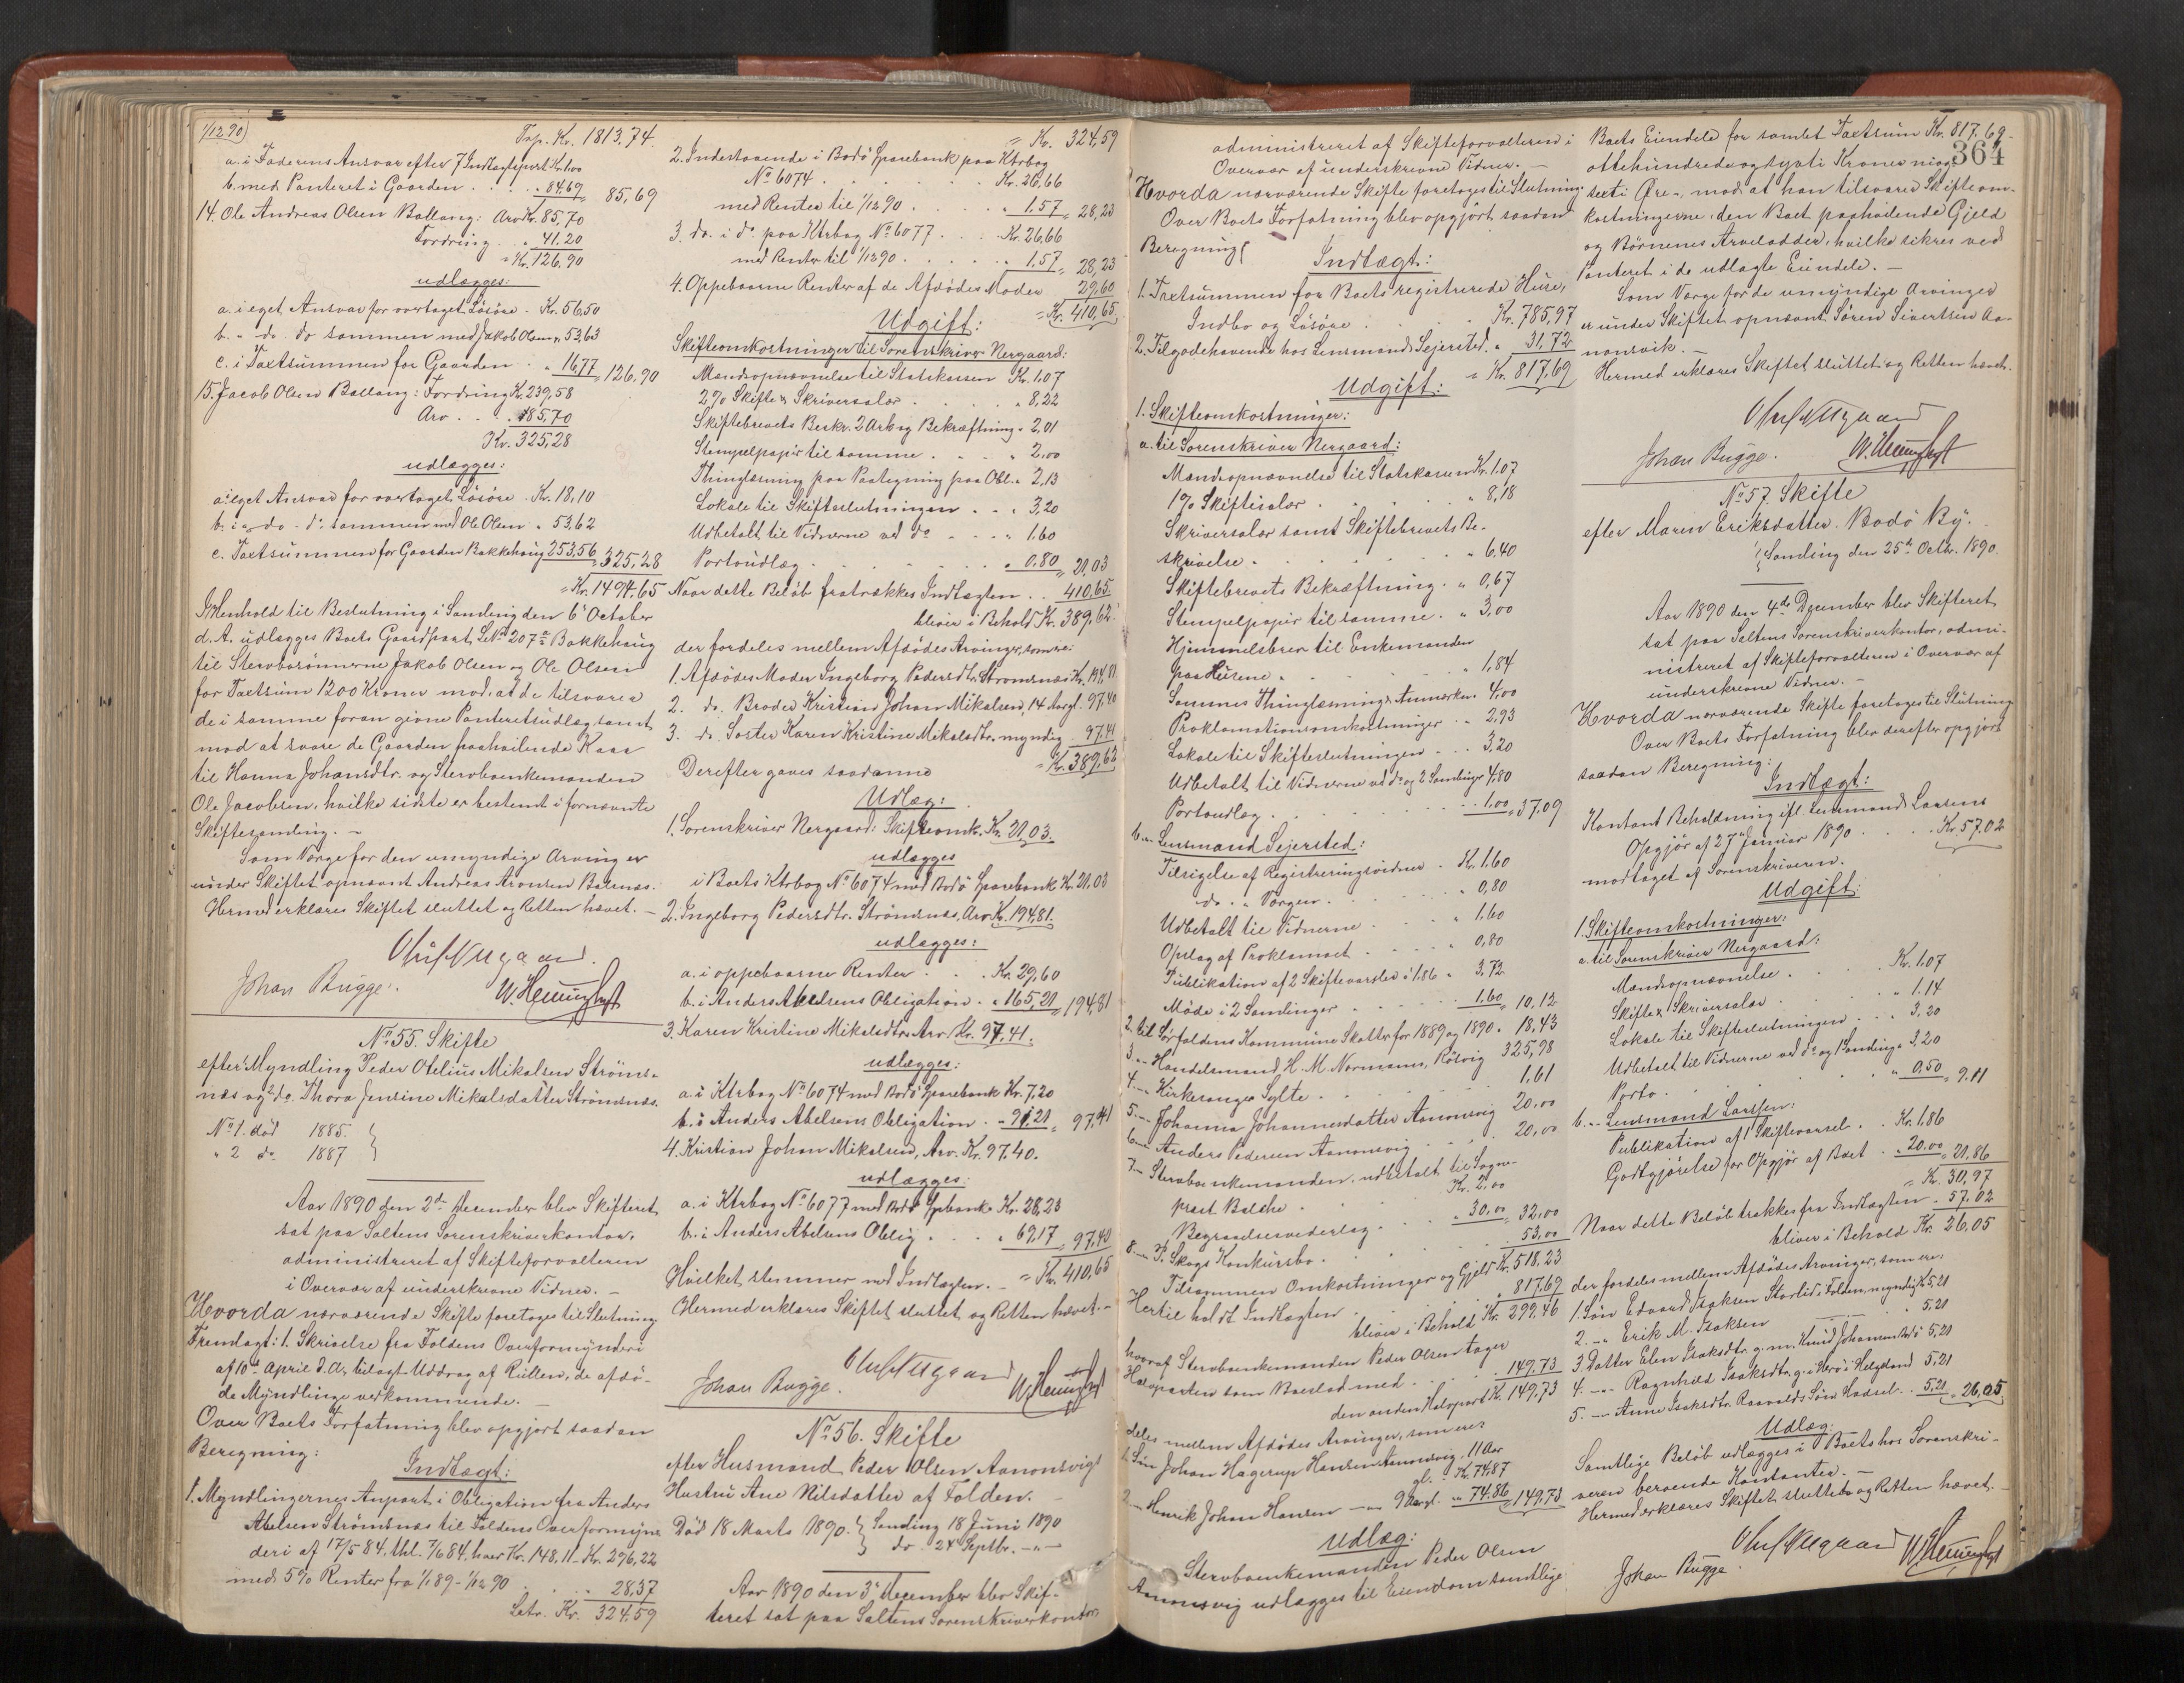 1/12 90)
Trp. Kr. 1813.74.
a. i Faderens Ansvar efter 7 Indtægtspost Kr. 1.00
b. med Panteret i Gaarden . . . " 84.69 = 85,69
14. Ole Andreas Olsen Ballang: Arv Kr. 85,70
Fordring . . " 41.20
= Kr. 126,90
udlægges:
a. i eget Ansvar for overtaget Lösöre . Kr. 56,50
b. " do. do sammen med Jakob Olsen " 53,63
c. i Taxtsummen for Gaarden . . " 16,77 = 126,90
15. Jacob Olsen Ballang: Fordring Kr. 239,58
Arv . . . " 85,70
Kr. 325,28
udlægges:
a. i eget Ansvar for overtaget Lösöre . Kr. 18,10
b. i " do - do. sammen med Ole Olsen " 53,62
c. Taxtsummen for Gaarden Bakkehaug 253,56 = 325,28
= Kr. 1494.65
I Henhold til Beslutning i Samling den 6te October
d. A. udlægges Boets Gaardpart, LNo 207a Bakkehaug
til Stervbosönnerne Jakob Olsen og Ole Olsen
for Taxtsum 1200 Kroner mod, at de tilsvarer
de i samme foran givne Panteretsudlæg samt
mod at svare de Gaarden paahvilende Kaar
til Hanna Johansdtr. og Stervboenkemanden
Ole Jacobsen, hvilke sidste er bestemt i fornævnte
Skiftesamling. —
Som Værge for den umyndige Arving er
under Skiftet opnævnt Andreas Aronsen Bærnæs.
Hermed erklæres Skiftet sluttet og Retten hævet. —
Oluf Nergaard.
Johan Bugge. W. Hemmingby
No 55. Skifte
efter 1) Myndling Peder Otelius Mikalsen Ströms-
næs og 2) do. Thora Jensine Mikalsdatter Strömsnæs.
No 1. död 1885.
" 2 do. 1887
Aar 1890 den 2den December blev Skifteret
sat paa Saltens Sorenskriverkontor,
administreret af Skifteforvalteren
i Overvær af underskrevne Vidner. —
Hvorda nærværende Skifte foretoges til Slutning.
Fremlagt: 1. Skrivelse fra Foldens Overformynderi
af 10de April d. A., bilagt Uddrag af Rullen, de afdö-
de Myndlinge vedkommende. —
Over Boets Forfatning blev opgjort saadan
Beregning:
Indtægt:
1. Myndlingernes Anpart i Obligation fra Anders
Abelsen Strömsnæs til Foldens Overformyn-
deri af 17/5 84, thl. 7/6 84, hver Kr. 148,11 - Kr. 296,22
med 5% Renter fra 1/1 89 - 1/12 90 . . . " 28,37
Latr. Kr. 324,59
= Kr. 324,59
2. Indestaaende i Bodö Sparebank paa Ktrbog
No 6074 . . . . . Kr. 26,66
med Renter til 1/12 90 . . . . " 1,57 = 28,23
3. do. i do. paa Ktrbog No 6077 . . . Kr. 26,66
med Renter til 1/12 90 . . . . " 1,57 = 28,23
4. Oppebaarne Renter af de Afdödes Moder . 29,60
= Kr. 410,65
Udgift:
Skifteomkostninger til Sorenskriver Nergaard:
Mandsopnævnelse til Statskassen Kr. 1,07
2% Skifte & Skriversalær . . . . " 8,22
Skiftebrevets Beskr. 2 Ark og Bekræftning " 2,01
Stempelpapir til samme . . . . " 2,00
Thinglæsning paa Paategning paa Obl. " 2,13
Lokale til Skifteslutningen . . . " 3,20
Udbetalt til Vidnerne ved do . . . " 1,60
Portoudlæg . . . . . . " 0,80 = 21,03
Naar dette Beløb fratrækkes Indtægten . . 410,65
bliver i Behold Kr. 389,62
der fordeles mellem Afdödes Arvinger, som er:
1. Afdödes Moder Ingeborg Pedersdtr. Strömsnæs Kr. 194,81
2. do. Broder Kristian Johan Mikalsen, 14 Aar gl. 97,40
3. do. Søster Karen Kristine Mikalsdtr. myndig 97,41
= Kr. 389,62
Derefter gaves saadanne
Udlæg:
1. Sorenskriver Nergaard: Skifteomk. Kr. 21,03.
udlægges
i Boets Ktrbog No 6074 med Bodö Sparebank Kr. 21,03
2. Ingeborg Pedersdtr. Strömsnæs, Arv Kr. 194,81.
udlægges:
a. i oppebaarne Renter . . . Kr. 29,60
b. i Anders Abelsens Obligation . . " 165,21 = 194,81
3. Karen Kristine Mikalsdtr. Arv Kr. 97,41.
udlægges:
a. i Ktrbog No 6074 med Bodö Sparebank Kr. 7,20
b. i Anders Abelsens Obligation . . " 91,21 = 97,41
4. Kristian Johan Mikalsen, Arv. Kr. 97,40.
udlægges:
a. i Ktrbog No 6077 med Bodö Spbank. Kr. 28,23
b. i Anders Abelsens Oblig . . . " 69,17 = 97,40
Hvilket stemmer med Indtægten. — = Kr. 410,65
Hermed erklæres Skiftet sluttet og Retten hævet. —
Oluf Nergaard
Johan Bugge. W. Hemmingby
No 56. Skifte
efter Husmand Peder Olsen Aanonsvigs
Hustru Ane Nilsdatter af Folden. —
Död 18 Marts 1890. Samling 18 Juni 1890
do. 24 Septbr. — " —
Aar 1890 den 3de December blev Skif-
teret sat paa Saltens Sorenskriverkontor,
administreret af Skifteforvalteren i
Overvær af underskrevne Vidner. —
Hvorda nærværende Skifte foretoges til Slutning.
Over Boets Forfatning blev opgjort saadan
Beregning:
Indtægt:
1. Taxtsummen for Boets registrerede Huse,
Indbo og Lösöre . . . . Kr. 785,97
2. Tilgodehavende hos Lensmand Sejersted. " 31,72
= Kr. 817,69
Udgift:
1. Skifteomkostninger:
a. til Sorenskriver Nergaard:
Mandsopnævnelse til Statskassen Kr. 1.07
1% Skiftesalær . . . . . " 8,18
Skriversalær samt Skiftebrevets Be-
skrivelse . . . . . " 6,40
Skiftebrevets Bekræftning . " 0,67
Stempelpapir til samme . . " 3,00
Hjemmelsbrev til Enkemanden
paa Husene . . . . " 1,84
Sammes Thinglæsning & Anmærkn. 4,00
Proklamationsomkostninger . " 2,93
Lokale til Skifteslutningen . . " 3,20
Udbetalt til Vidnerne ved do og 2 Samlinger 4,80
Portoudlæg . . . . . . 1,00 = 37.09
b. " Lensmand Sejersted:
Tilsigelse af Registreringsvidner . Kr. 1.60
do. . " Værgen . . . . " 0,80
Udbetalt til Vidnerne . . . " 1.60
Opslag af Proklamaet . . . " 0,80
Publikation af 2 Skiftevarsler à 1.86 " 3,72
Möde i 2 Samlinger . . . . 1.60 = 10,12
2. til Sörfoldens Kommune Skatter for 1889 og 1890 . 18,43
3. — Handelsmand H. M. Normann, Rösvig 325,98
4. — Kirkesanger Sylte . . . . 1,61
5. — Johanna Johannesdatter Aanonsvig 20,00
6. — Anders Pedersen Aanonsvig . . . 20,00
7. — Stervboenkemanden, udbetalt til Sogne-
præst Balche . . . Kr. 2,00
Begravelsesvederlag . . . " 30,00 = 32,00
8. — P. Skogs Konkursbo . . . . 53,00
Tilsammen Omkostninger og Gjeld Kr. 518,23
Hertil holdt Indtægten . . . " 817,69
bliver i Behold Kr. 299,46
hvoraf Stervboenkemanden Peder Olsen tager
Halvparten som Boeslod med . . . . 149,73
den anden Halvpart Kr. 149,73
deles mellem Afdödes Arvinger, som er:
1. Sön Johan Hagerup Hansen Aanonsvig, 11 Aar
gl. . Kr. 74,87
2. — Henrik Johan Hansen — " 9 Aar gl. " 74,86 = 149,73
Udlæg:
Stervboenkemanden Peder Olsen
Aanonsvig udlægges til Eiendom samtlige
364
Boets Eiendele for samlet Taxtsum Kr. 817.69 -
ottehundrede og sytten Kroner niog-
sexti Øre -, mod, at han tilsvarer Skifteom-
kostningerne, den Boet paahvilende Gjeld
og Börnenes Arvelodder, hvilke sikres ved
Panteret i de udlagte Eiendele. —
Som Værge for de umyndige Arvinger
er under Skiftet opnævnt Sören Sivertsen Aa-
nonsvik. —
Hermed erklæres Skiftet sluttet og Retten hævet.
Oluf Nergaard
Johan Bugge. W. Hemmingby
No 57. Skifte
efter Maren Eriksdatter, Bodö By.
Samling den 25de Octbr. 1890.
Aar 1890 den 4de December blev Skifteret
sat paa Saltens Sorenskriverkontor, admi-
nistreret af Skifteforvalteren i Overvær af
underskrevne Vidner. —
Hvorda nærværende Skifte foretoges til Slutning.
Over Boets Forfatning blev derefter opgjort
saadan Beregning:
Indtægt:
Kontant Beholdning ifl. Lensmand Larsens
Opgjör af 27de Januar 1890 . . . Kr. 57.02
modtaget af Sorenskriveren.
Udgift:
1. Skifteomkostninger:
a. til Sorenskriver Nergaard:
Mandsopnævnelse . . . . Kr. 1.07
Skifte & Skriversalær . . . " 1.14
Lokale til Skifteslutningen . . " 3,20
Udbetalt til Vidnerne ved do og 1 Samling " 3,20
Porto . . . . . " 0,50 = 9.11
b. — Lensmand Larssen:
Publikation af 1 Skiftevarsel . . Kr. 1,86
Godtgjörelse for Opgjör af Boet . . " 20,00 = 21,86
= Kr. 30,97
Naar dette Beløb trækkes fra Indtægten . 57.02
bliver i Behold Kr. 26.05
der fordeles mellem Afdödes Arvinger, som er:
1. Sön Edvard Isaksen Storlid i Folden, myndig Kr. 5,21
2. — " Erik M. Isaksen . . . 5,21
3. Datter Elen Isaksdtr. g. m. Knud Johansen Bodö 5,21
4. — " Ragnhild Isaksdtr. g. i Herö i Helgeland 5,21
5. — " Anne Isaksdtr. Hadsel . . 5,21 = 26,05
Udlæg:
Samtlige Beløb udlægges i Boets hos Sorenskri-
veren beroende Kontanter. —
Hermed erklæres Skiftet sluttet og Retten hævet. —
Oluf Nergaard
Johan Bugge. W. Hemmingby